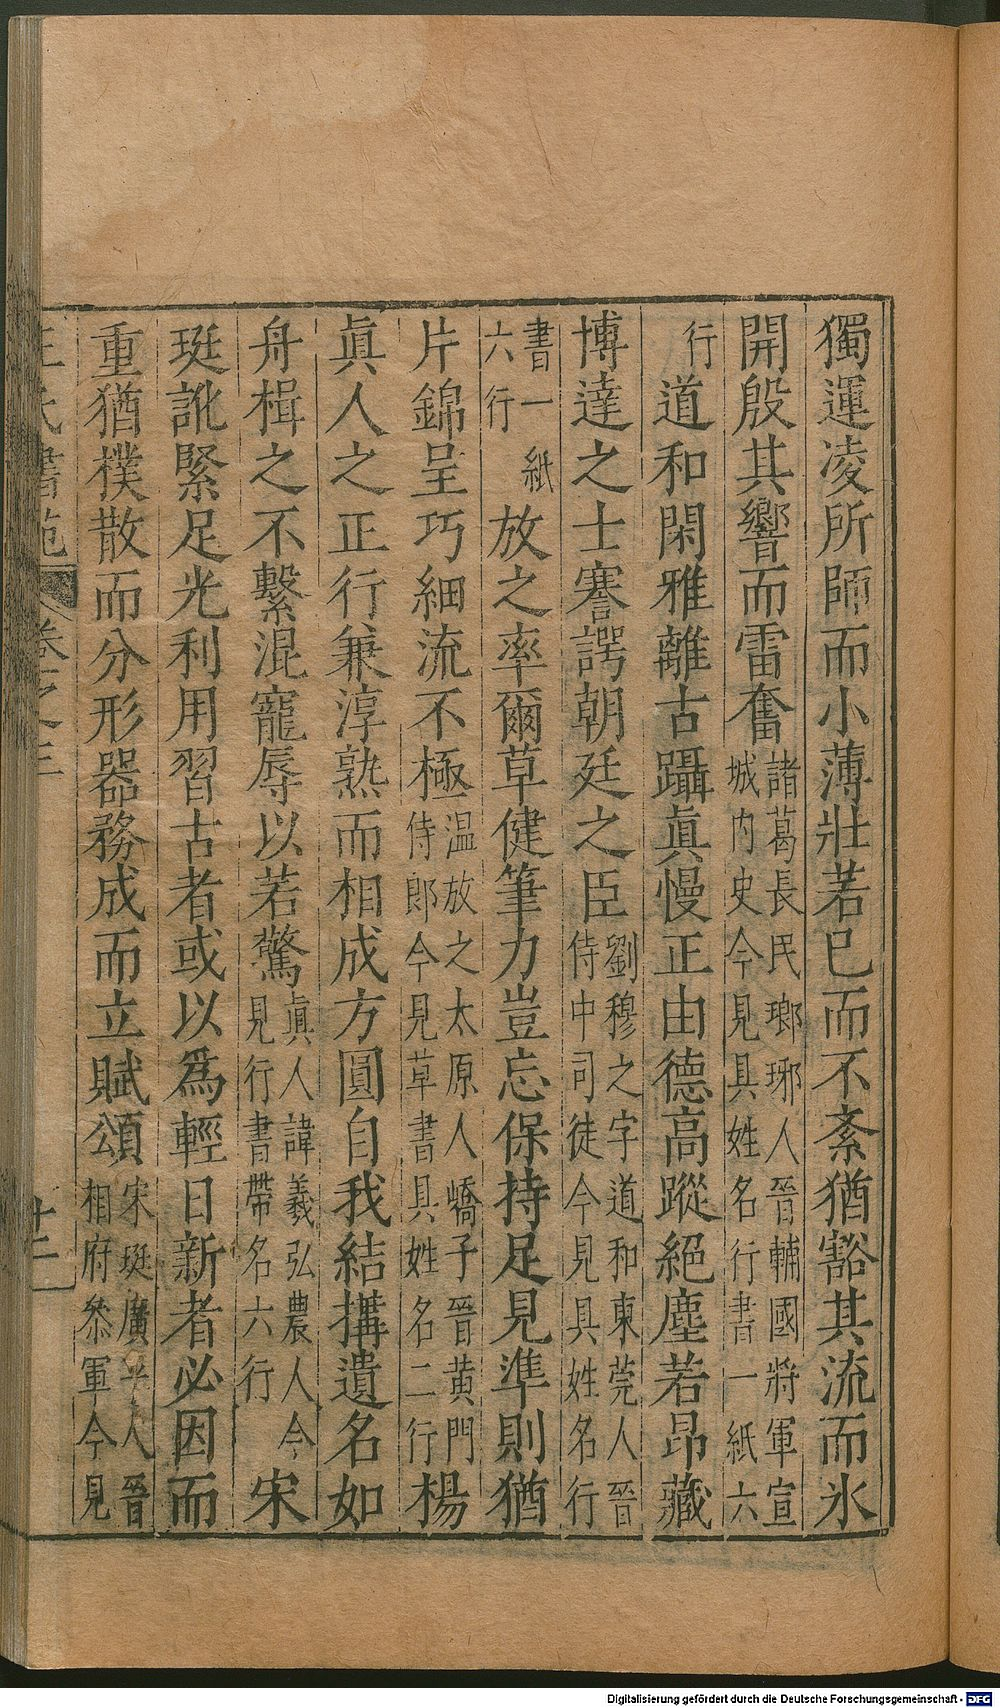 獨運凌所師而小薄壯若已而不紊猶豁其流而氷
開殷其響而雷奮諸葛長民瑯琊人晉輔國將軍宣城內史今見具姓名行書一紙六
行道和閑雅離古躡眞慢正由德高蹤絕塵若昂藏
博達之士謇諤朝廷之臣劉穆之字道和東莞人晉侍中司徒今見具姓名行
書一紙六行放之率爾草健筆力豈忘保持足見準則猶
片錦呈巧細流不極温放之太原人嶠子晉黄門侍郎今見草書具姓名二行楊
眞人之正行兼淳熟而相成方圓自我結搆遺名如
舟楫之不繫混寵辱以若驚眞人諱羲弘農人今見行書帶名六行宋
珽訛緊足光利用習古者或以爲輕日新者必因而
重猶樸散而分形器務成而立賦頌宋珽廣平人晉相府叅軍今見
王氏書苑 卷之三 十二
Digitalisierung gefördert durch die Deutsche Forschungsgemeinschaft - DFG